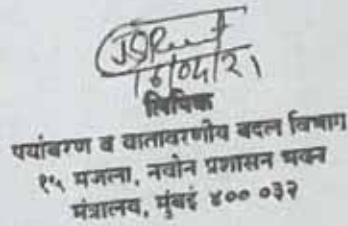 लिपिक
पर्यावरण व वातावरणीय बदल विभाग
१५ मजला, नवीन प्रशासन भवन
मंत्रालय, मुंबई ४०० ०३२